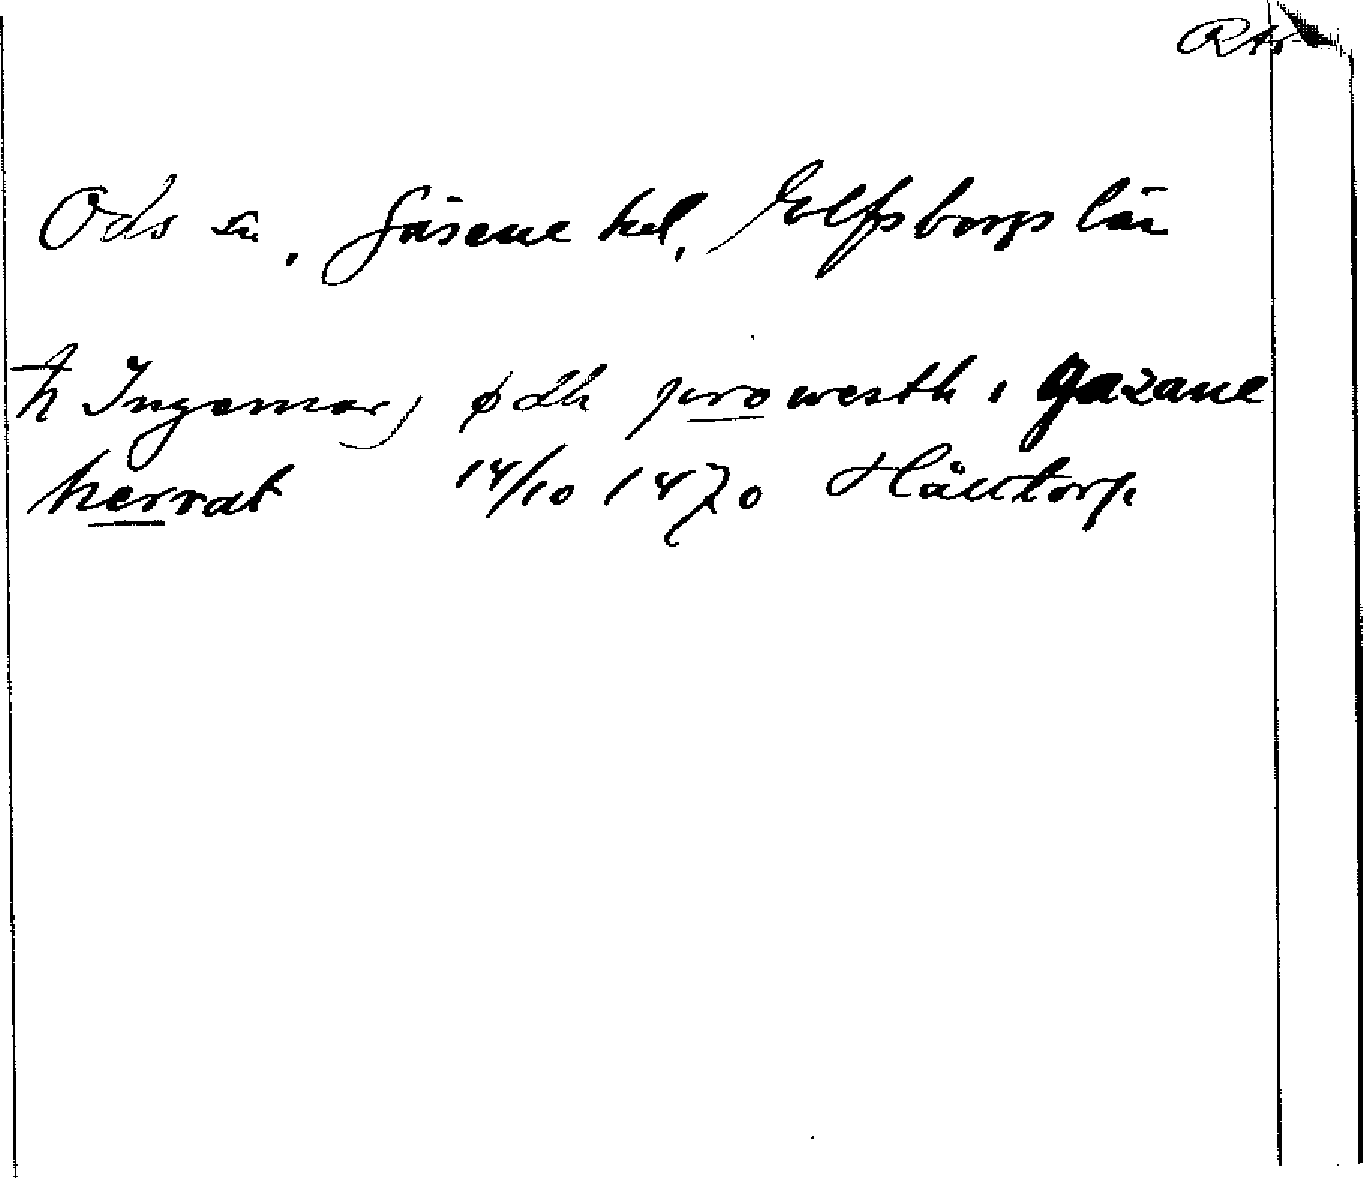 RAp
Ods sn, Gäsene hd, Elfsborgs län
h Ingemar, ødh prowesth i gäzane
herrat 14/10 1470 Hälltorp